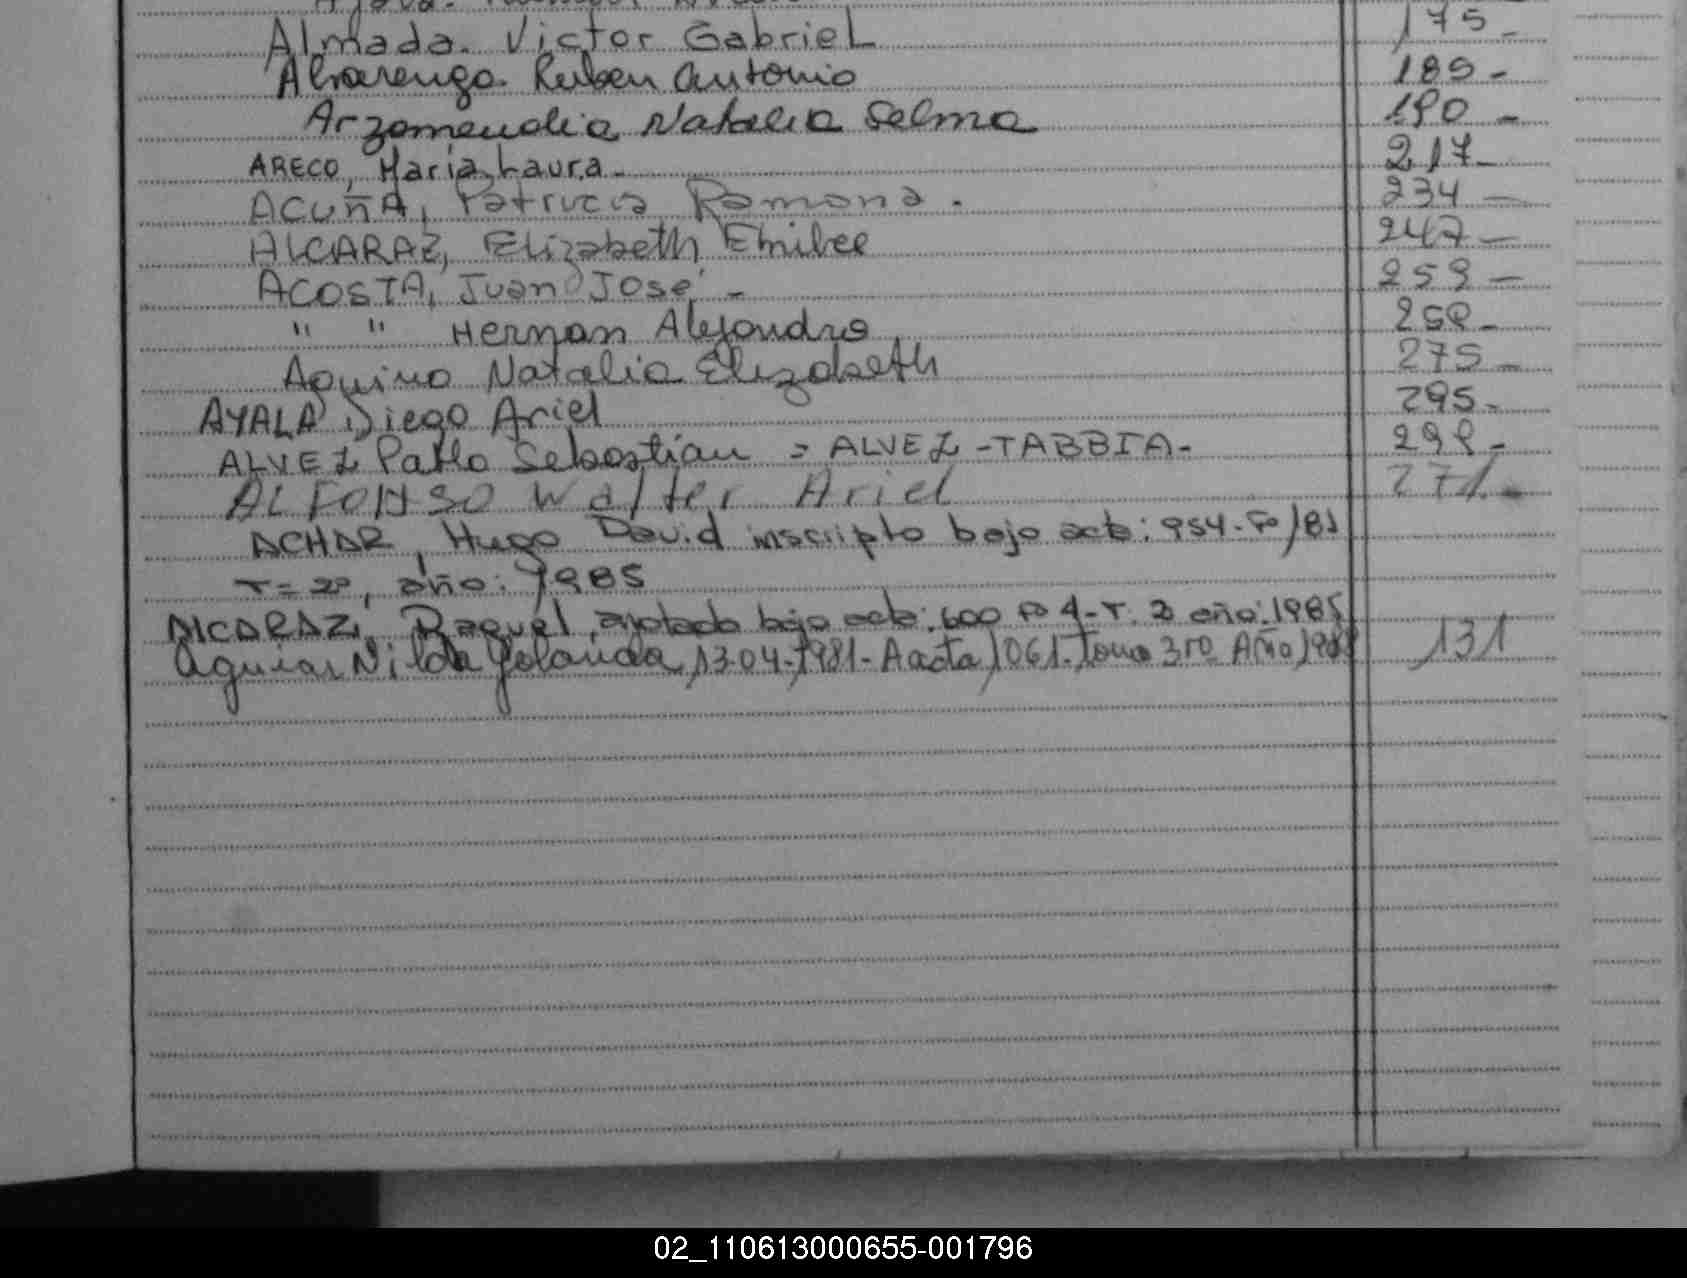 Almada. Victor Gabriel 175-
Alvarenga. Ruben Antonio 189-
Arzamendia Natalia Selma 190-
ARECO, María Laura- 217-
ACUÑA, Patricia Ramona. 234-
ALCARAZ, Elizabeth Emilce 247-
ACOSTA, Juan José,- 259-
" " Hernan Alejandro 258-
Aquino Natalia Elizabeth 275-
AYALA Diego Ariel 295-
ALVEZ Pablo Sebastián = ALVEZ-TABBIA- 298-
ALFONSO Walter Ariel 271-
ACHAR, Hugo David inscripto bajo acta: 954-Fº181
T=2º, año: 1985
ALCARAZ, Raquel, anotado bajo acta: 600 Fº 1-T: 3 año: 1985
Aguiar Nilda Yolanda, 13-04-1981- Aacta 1061-Tomo 3ro Año 1988 131
02_110613000655-001796